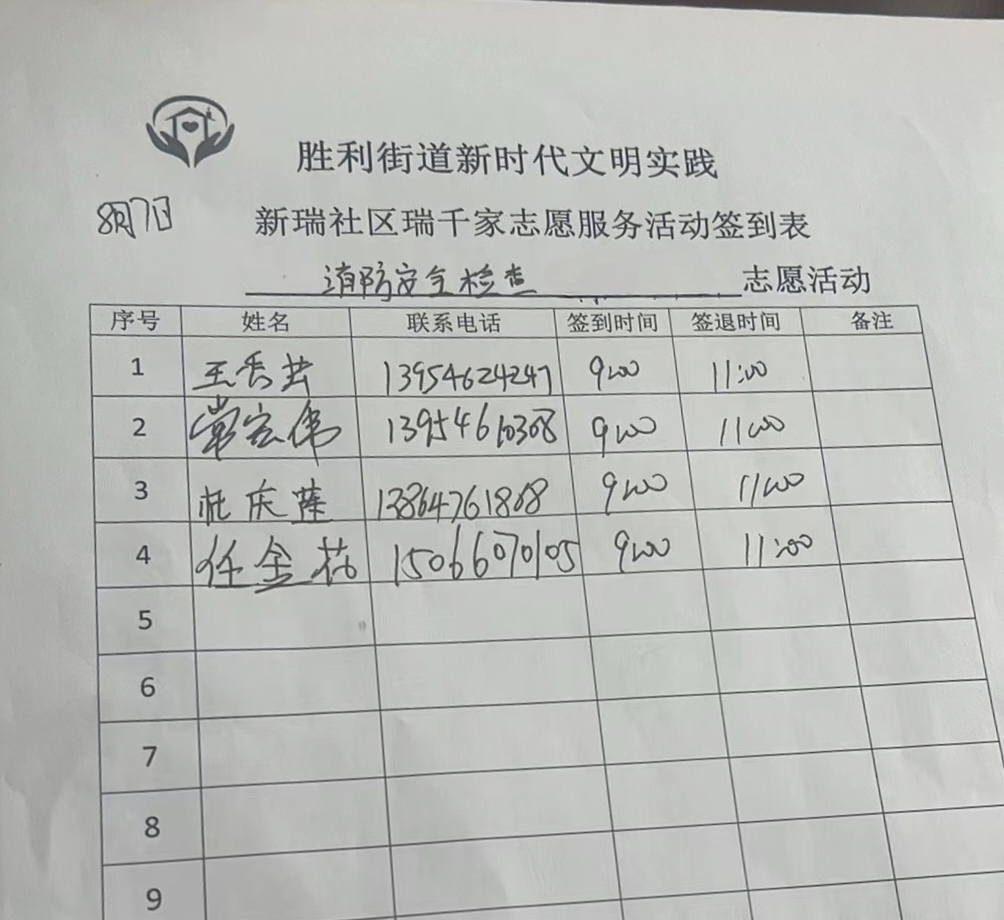 胜利街道新时代文明实践
8月7日 新瑞社区瑞千家志愿服务活动签到表
消防安全检查 志愿活动
序号 姓名 联系电话 签到时间 签退时间 备注
1 王秀芸 13954624247 9:00 11:00
2 常宏伟 13954610308 9:00 11:00
3 杜庆莲 13864761808 9:00 11:00
4 任金花 15066070105 9:00 11:00
5
6
7
8
9